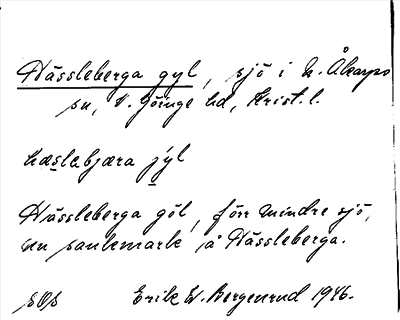 Hässleberga gyl, sjö i N. Åkarps
sn, V. Göinge hd, Krist. l.
hæslabjæra jyl
Hässleberga göl, förr mindre sjö,
nu sankmark å Hässleberga.
Erik W. Bergenrud 1946.